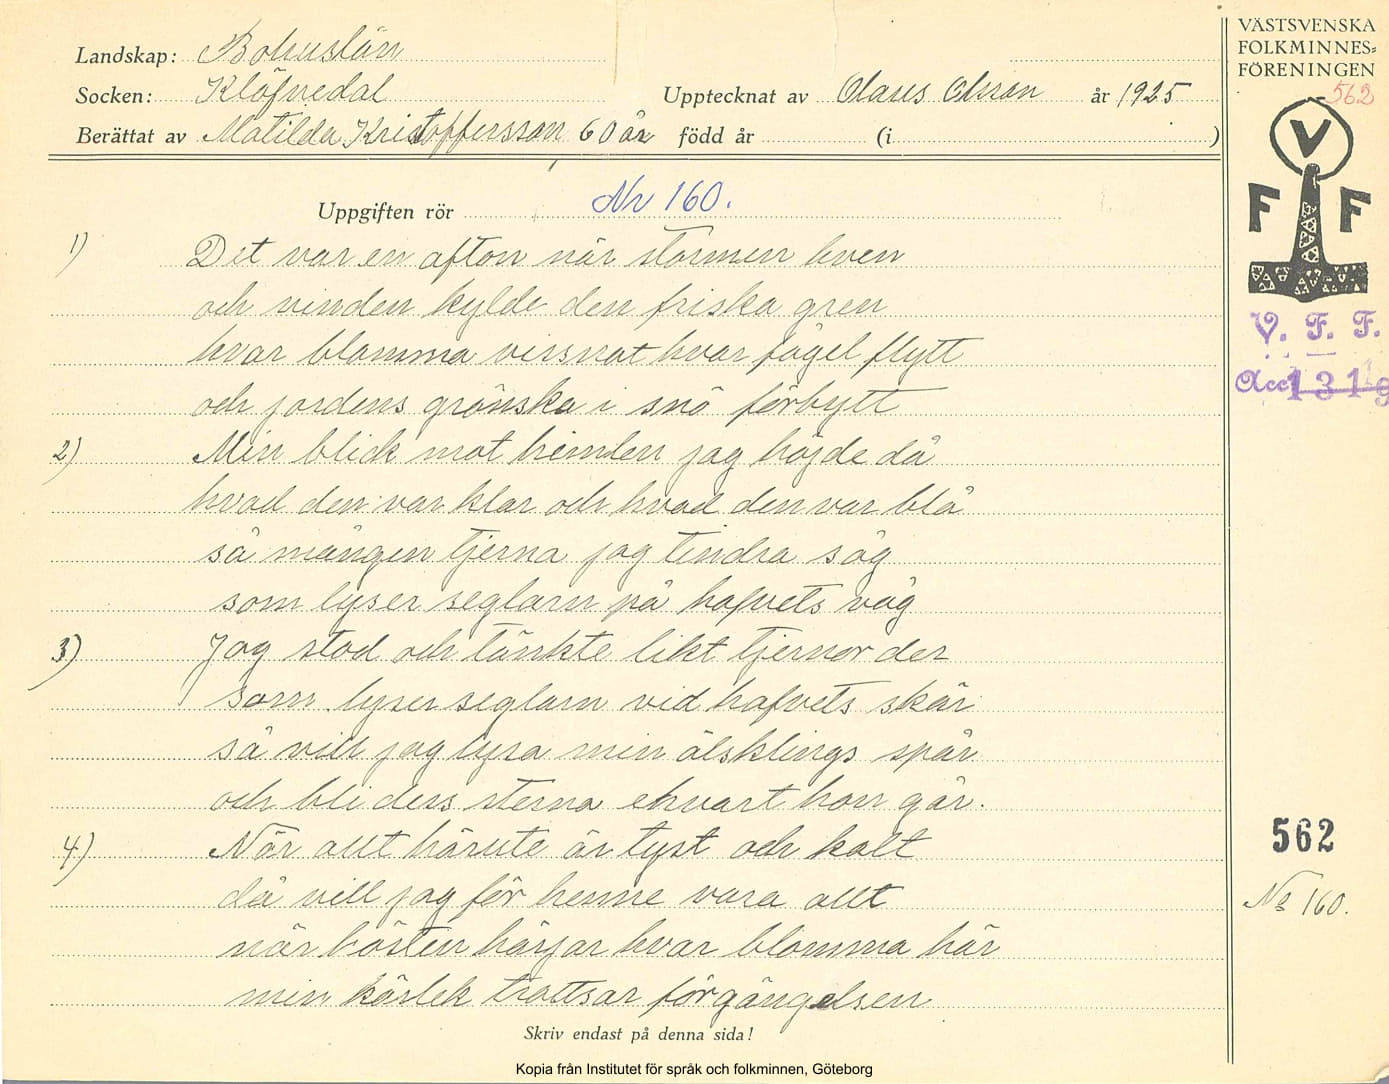 Landskap: Bohuslän
Socken: Klöfvedal
Upptecknat av Olaus Olsson år 1925
Berättat av Matilda Kristoffersson 60 år född år (i )
Uppgiften rör Nr 160.
1) Det var en afton när stormen hven
och vinden kylde den friska gren
hvar blomma vissnat hvar fågel flytt
och jordens grönska i snö förbytt
2) Min blick mot himlen jag höjde då
hvad den var klar och hvad den var blå
så mången tjerna jag tindra såg
som lyser seglarn på hafvets våg
3) Jag stod och tänkte likt tjernor der
som lyser seglarn vid hafvets skär
så vill jag lysa min älsklings spår
och bli dess sterna ehvart hon går.
4) När allt härute är tyst och kalt
då vill jag för henne vara allt
när hösten härjar hvar blomma här
min kärlek trottsar förgängelsen
Skriv endast på denna sida!
Kopia från Institutet för språk och folkminnen, Göteborg
VÄSTSVENSKA
FOLKMINNES=
FÖRENINGEN
562
V
F F
V. F. F.
Acc 1319
562
No 160.